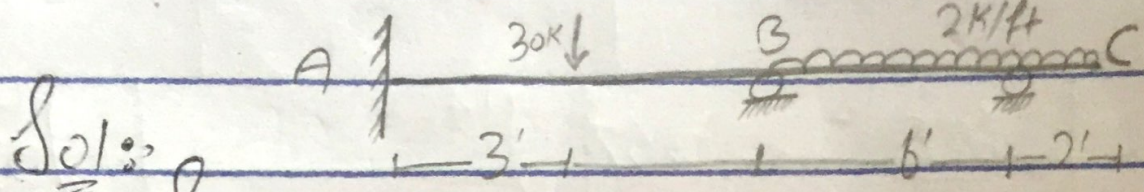 A 30K B 2K/ft C
Sol:
3' 6' 2'